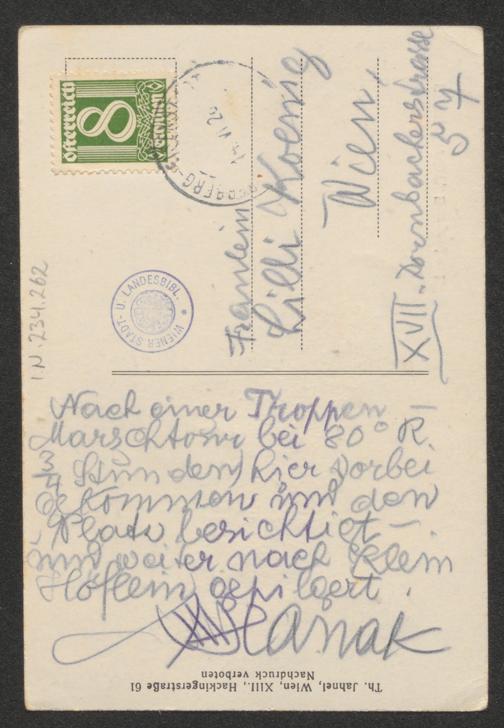 österreich
8
Groschen
Fräulein
Lilli Koenig
Wien,
XVII. Dornbacherstrasse
57
I.N. 234.262
WIENER STADT- U. LANDESBIBL.
Nach einer Troppen-
Marschtour bei 80° R.
Stunden hier vorbei
gekommen und den
Platz besichtigt –
und weiter nach Klein
Höflein gepilgert.
Hanak
Th. Jahnel, Wien, XIII., Hackingerstraße 61
Nachdruck verboten